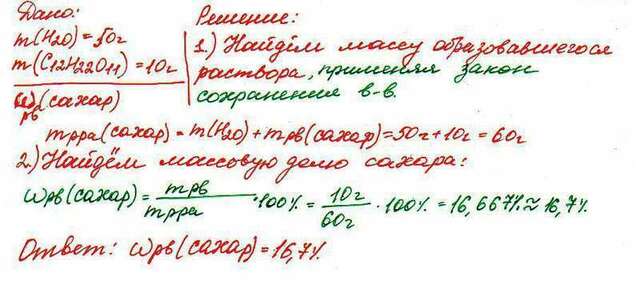 Дано:
m(H2O)=50г
m(C12H22O11)=10г
ωрв(сахар)
Решение:
1.) Найдём массу образовавшегося
раствора, применяя закон
сохранения в-в.
mрра(сахар)=m(H2O)+mрв(сахар)=50г+10г=60г
2.) Найдём массовую долю сахара:
ωрв(сахар)=mрв/mрра·100%=10г/60г·100%=16,667%≈16,7%
Ответ: ωрв(сахар)=16,7%